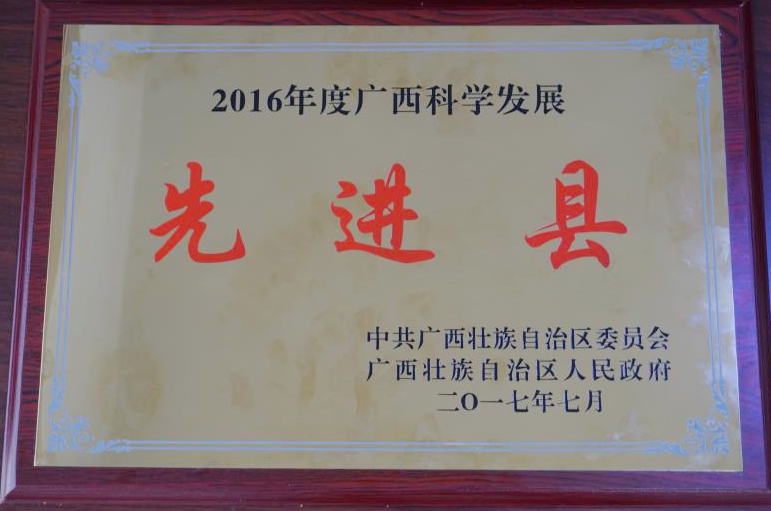 2016年度广西科学发展
先进县
中共广西壮族自治区委员会
广西壮族自治区人民政府
二〇一七年七月